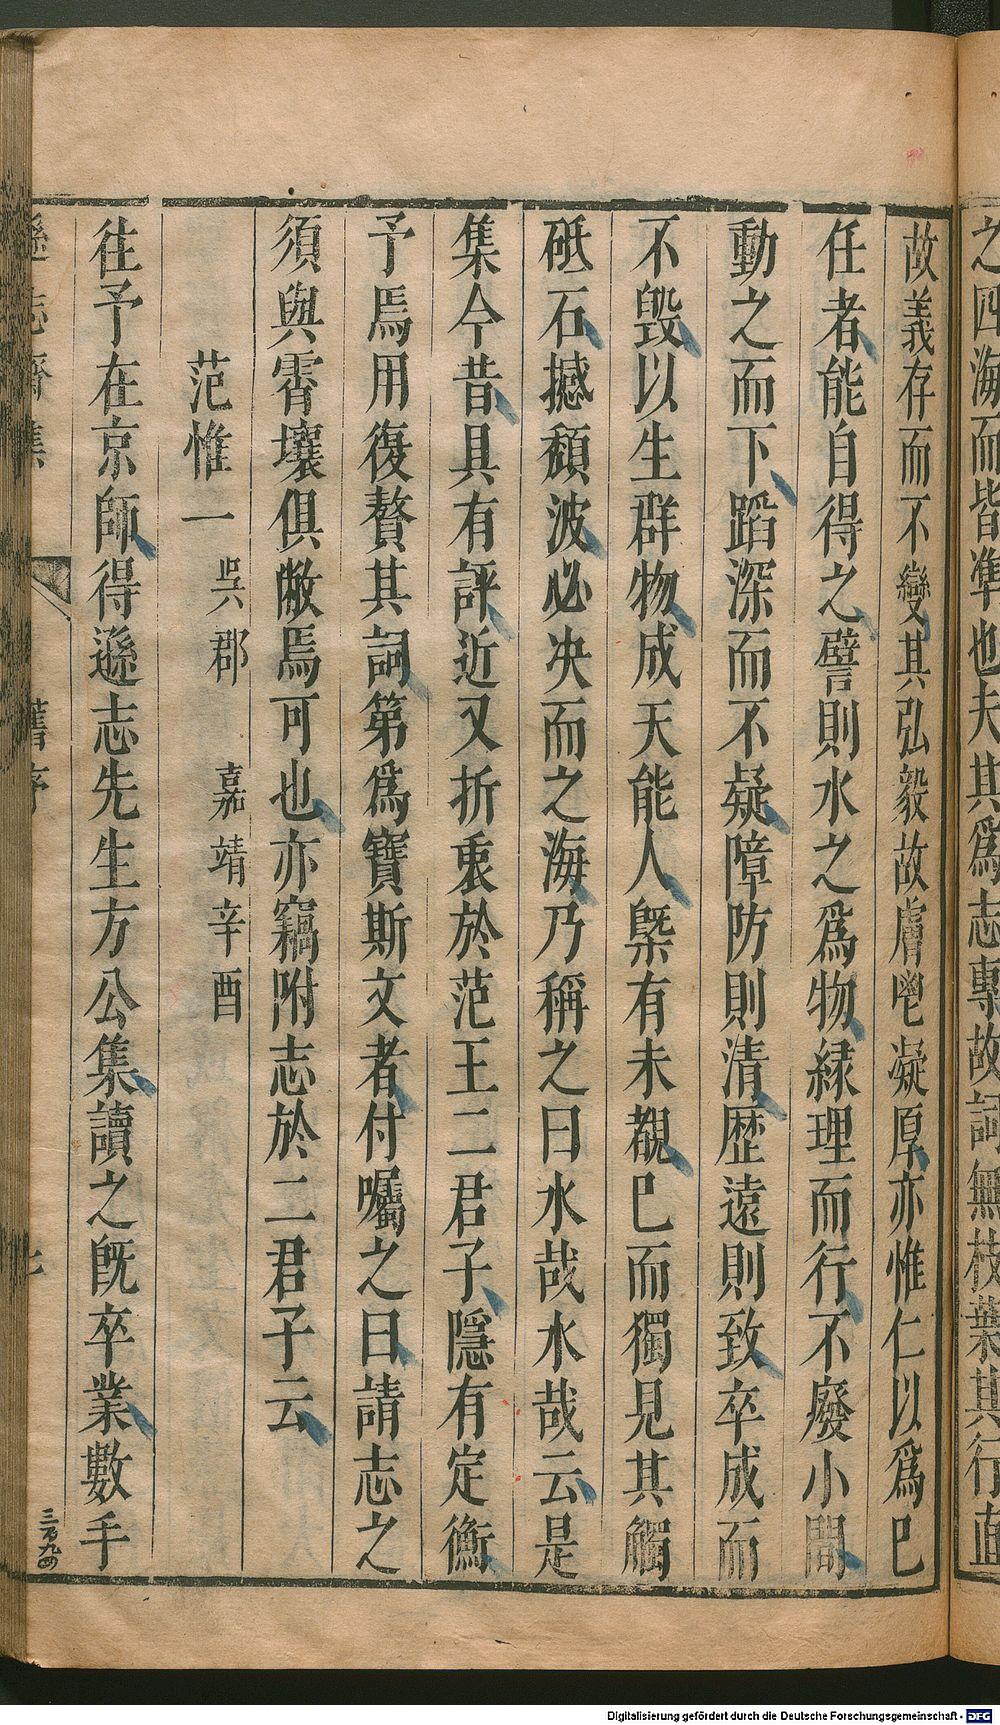 之四海而皆準也夫其爲志專故詞無枝葉其行直
故義存而不變其弘毅故膚鬯凝厚亦惟仁以爲巳
任者能自得之譬則水之爲物緣理而行不廢小間
動之而下蹈深而不疑障防則清歷遠則致卒成而
不毀以生群物成天能人槩有未覩巳而獨見其觸
砥石撼頹波必决而之海乃稱之曰水哉水哉云是
集今昔具有評近又折衷於范王二君子隱有定衡
予焉用復贅其詞第爲寶斯文者付囑之曰請志之
須與霄壤俱敝焉可也亦竊附志於二君子云
范惟一 吳郡 嘉靖辛酉
往予在京師得遜志先生方公集讀之旣卒業數手
遜志齋集 舊序 七
三百九四
Digitalisierung gefördert durch die Deutsche Forschungsgemeinschaft - DFG